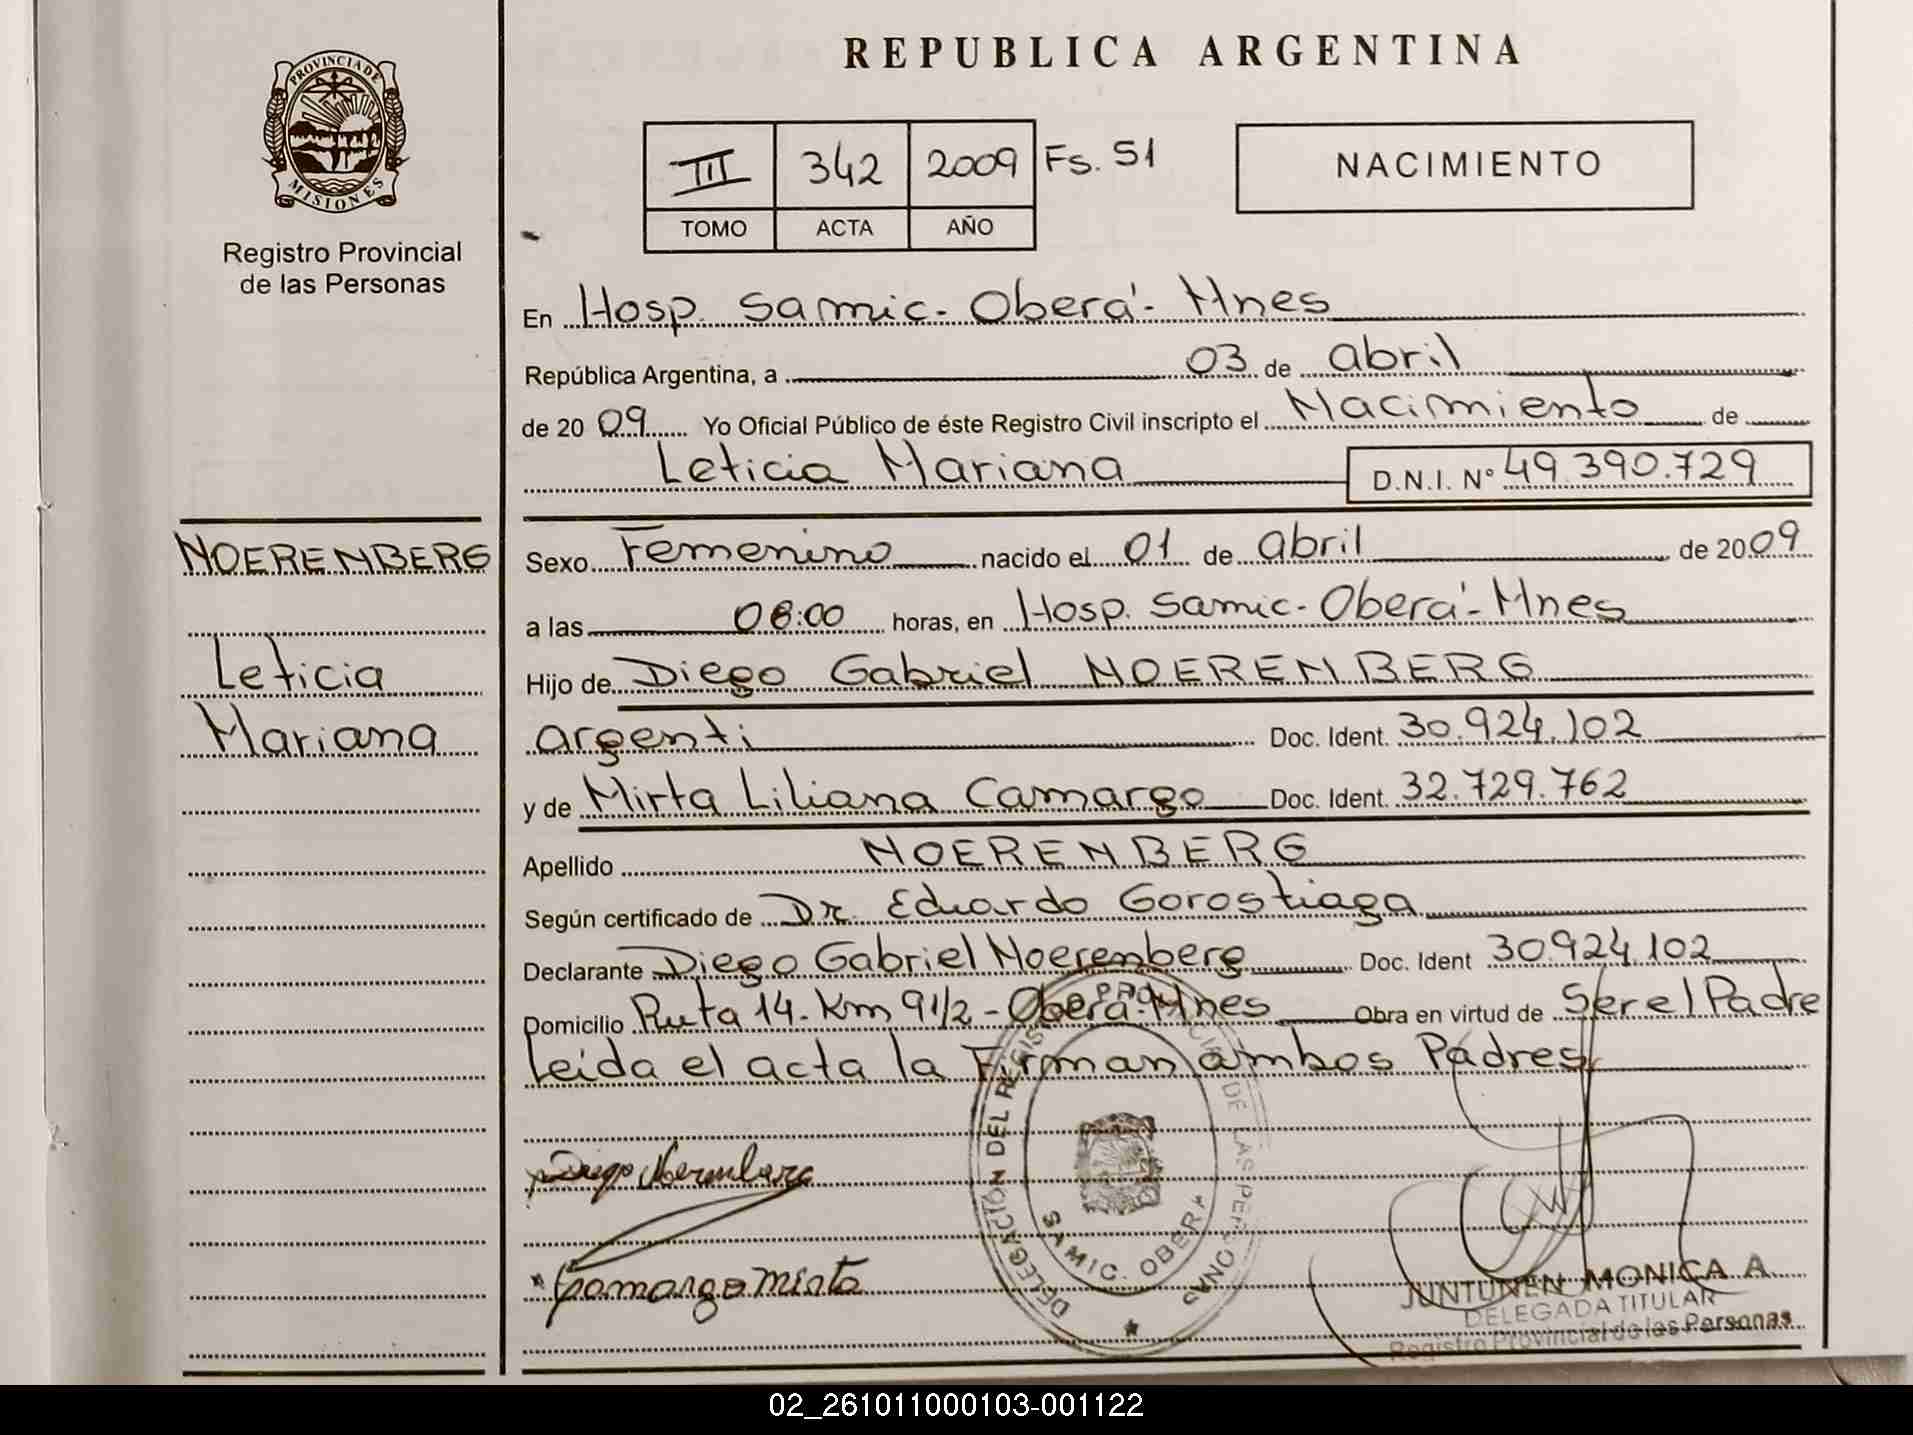 REPUBLICA ARGENTINA
PROVINCIA DE
MISIONES
Registro Provincial
de las Personas
III 342 2009 Fs. 51
TOMO ACTA AÑO
NACIMIENTO
En Hosp. Samic - Oberá - Mnes
República Argentina, a 03 de abril
de 20 09 Yo Oficial Público de éste Registro Civil inscripto el Nacimiento de
Leticia Mariana D.N.I. Nº 49.390.729
NOERENBERG
Leticia
Mariana
Sexo Femenino nacido el 01 de abril de 20 09
a las 08:00 horas, en Hosp. Samic - Oberá - Mnes
Hijo de Diego Gabriel NOERENBERG
argenti Doc. Ident. 30.924.102
y de Mirta Liliana Camargo Doc. Ident. 32.729.762
Apellido NOERENBERG
Según certificado de Dr. Eduardo Gorostiaga
Declarante Diego Gabriel Noerenberg Doc. Ident 30.924.102
Domicilio Ruta 14 - Km 9 1/2 - Oberá - Mnes Obra en virtud de Ser el Padre
Leida el acta la Firman ambos Padres
Diego
Camargo Mirta
DELEGACIÓN DEL DE LAS
SAMIC. OBERA
JUNTUNEN MONICA A.
DELEGADA TITULAR
Registro Provincial de las Personas
02_261011000103-001122